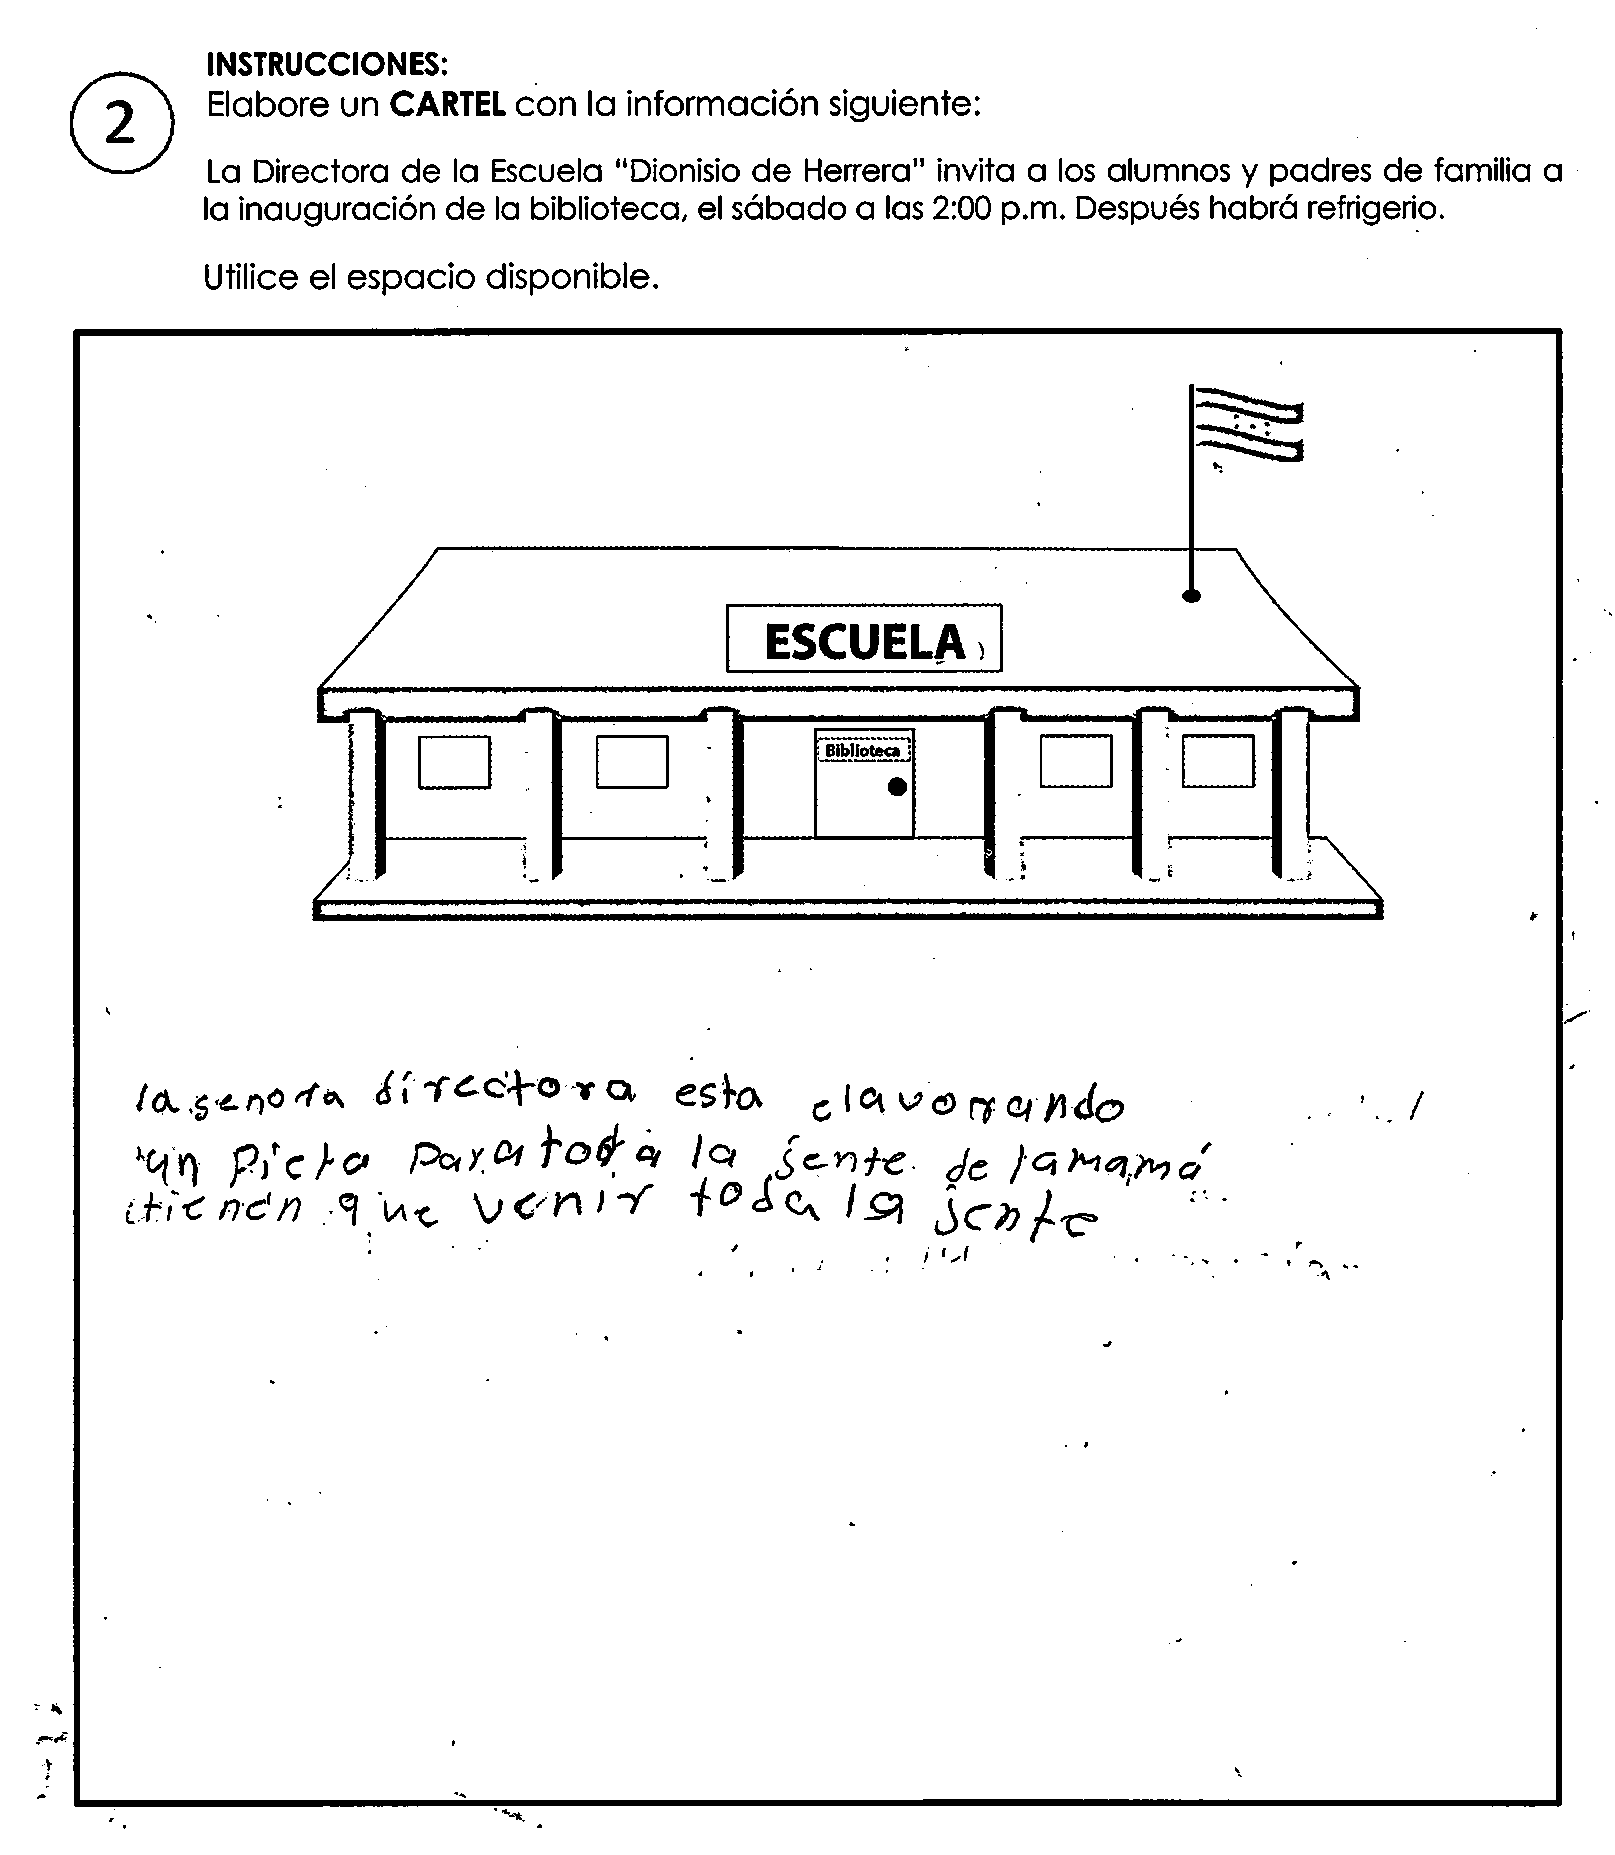 INSTRUCCIONES:
2
Elabore un CARTEL con la información siguiente:
La Directora de la Escuela "Dionisio de Herrera" invita a los alumnos y padres de familia a
la inauguración de la biblioteca, el sábado a las 2:00 p.m. Después habrá refrigerio.
Utilice el espacio disponible.
ESCUELA
Biblioteca
la senora directora esta elavorando
un picto para toda la jente de la mamá
tienen que venir toda la jente